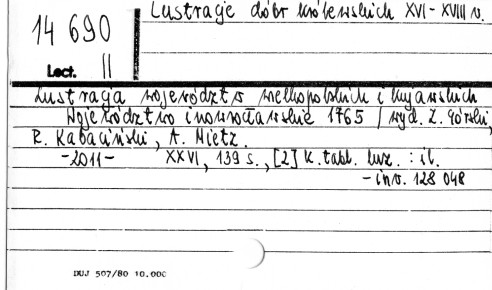 Lustracje dóbr królewskich XVI-XVIII w.
14 690
Lect. II
Lustracja województw wielkopolskich i kujawskich
Województwo inowrocławskie 1765 / wyd. Z. Górski,
R. Kabaciński, A. Mietz.
-2011- XXVI, 139 s., [2] k. tabl. luz. : il.
- inw. 128 048
DUJ 507/80 10.000